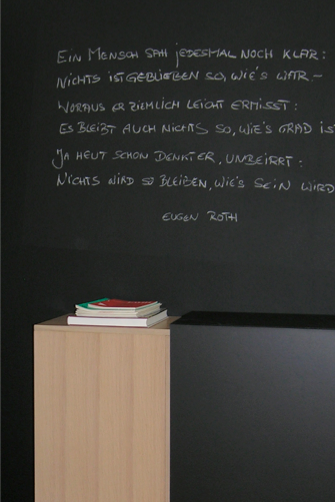 EIN MENSCH SAH JEDESMAL NOCH KLAR:
NICHTS IST GEBLIEBEN SO, WIE'S WAR –
WORAUS ER ZIEMLICH LEICHT ERMISST:
ES BLEIBT AUCH NICHTS SO, WIE'S GRAD IST
JA HEUT SCHON DENKT ER, UNBEIRRT:
NICHTS WIRD SO BLEIBEN, WIE'S SEIN WIRD
EUGEN ROTH